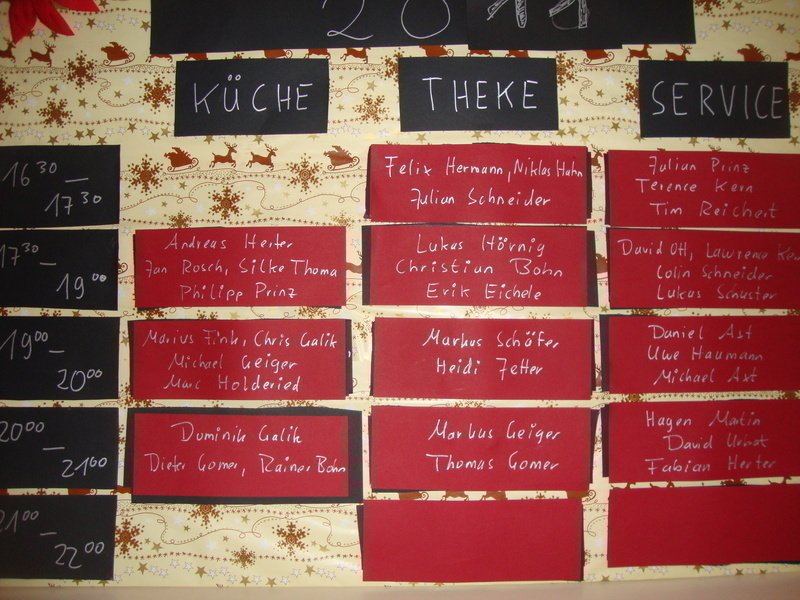 KÜCHE THEKE SERVICE
16 30 —
17 30
Felix Hermann, Niklas Hahn
Julian Schneider
Julian Prinz
Terence Kern
Tim Reichert
17 30 —
19 00
Andreas Herter
Jan Rosch, Silke Thoma
Philipp Prinz
Lukas Hörnig
Christian Bohn
Erik Eichele
David Ott, Lawrence
Colin Schneider
Lukas Schuster
19 00 —
20 00
Marius Fink, Chris Galik,
Michael Geiger
Marc Holderied
Markus Schäfer
Heidi Zetter
Daniel Ast
Uwe Haumann
Michael Ast
20 00 —
21 00
Dominik Galik
Dieter Gomer, Rainer Bohn
Markus Geiger
Thomas Gomer
Hagen Martin
David
Fabian Herter
21 00 —
22 00